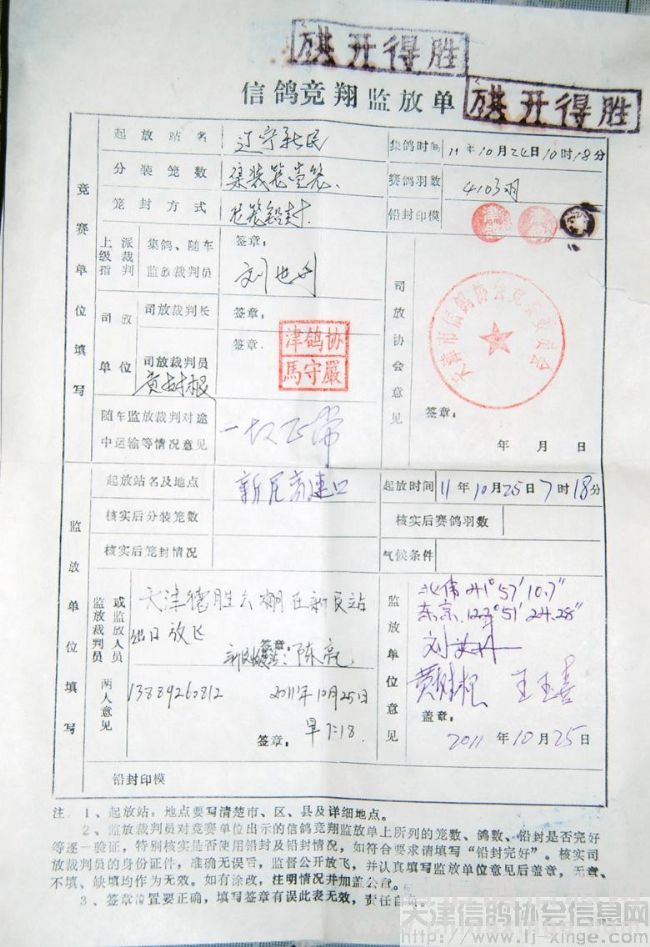 旗开得胜
旗开得胜
信鸽竞翔监放单
竞赛单位填写
起放站名 辽宁新民
集鸽时间 11年10月24日10时18分
分装笼数
赛鸽羽数 4103羽
笼封方式 笼铅封
铅封印模
上级指 派裁判 集鸽、随车监放裁判员 签章:
司放单位
司放裁判长 签章:
司放裁判员 签章:
黄财根
津鸽协
馬守嚴
司放协会意见
天津市信鸽协会竞赛委员会
签章:
年 月 日
随车监放裁判对途中运输等情况意见 一切正常
监放单位填写
起放站名及地点 新民高速口
起放时间 11年10月25日7时18分
核实后分装笼数
核实后赛鸽羽数
核实后笼封情况
气候条件
监放裁判员 或监放人员 两人意见
天津德胜公棚在新民站
出口放飞
签章: 陈亮
13889260812 2011年10月25日
早7:18
签章:
监放单位意见
北伟41°57′10.7″
东京.123°51′24.28″
黄财根 王玉喜
盖章:
2011年10月25日
铅封印模
注:1、起放站:地点要写清楚市、区、县及详细地点。
2、监放裁判员对竞赛单位出示的信鸽竞翔监放单上所列的笼数、鸽数、铅封是否完好
等逐一验证,特别核实是否使用铅封及铅封情况,如符合要求请填写“铅封完好”。核实司
放裁判员的身份证件,准确无误后,监督公开放飞,并认真填写监放单位意见后盖章,无章、
不填、缺填均作为无效。如有涂改,注明情况并加盖公章。
3、签章位置要正确,填写签章有误此表无效,责任自
天津信鸽协会信息网
www.tj-xinge.com